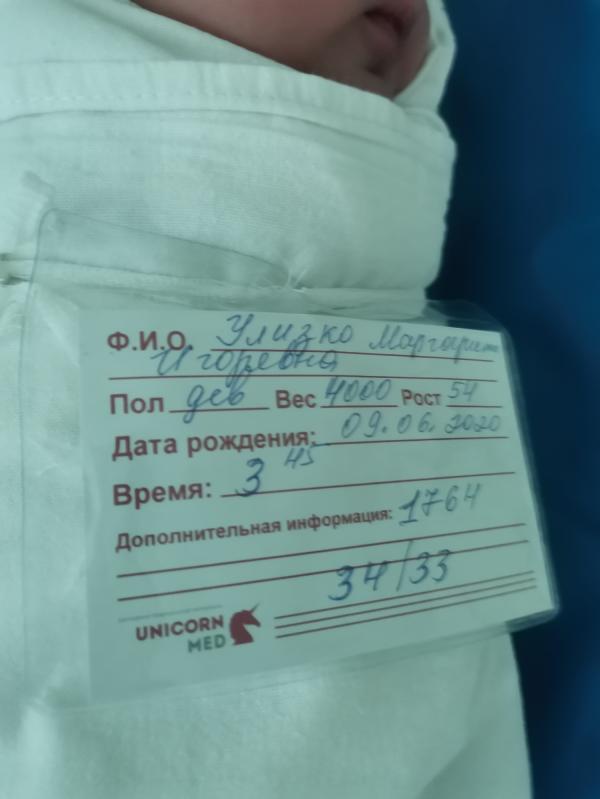 Ф.И.О. Улизко Маргарита
Игоревна
Пол дев Вес 4000 Рост 54
Дата рождения: 09.06.2020
Время: 3 45
Дополнительная информация: 1764
34/33
UNICORN
MED